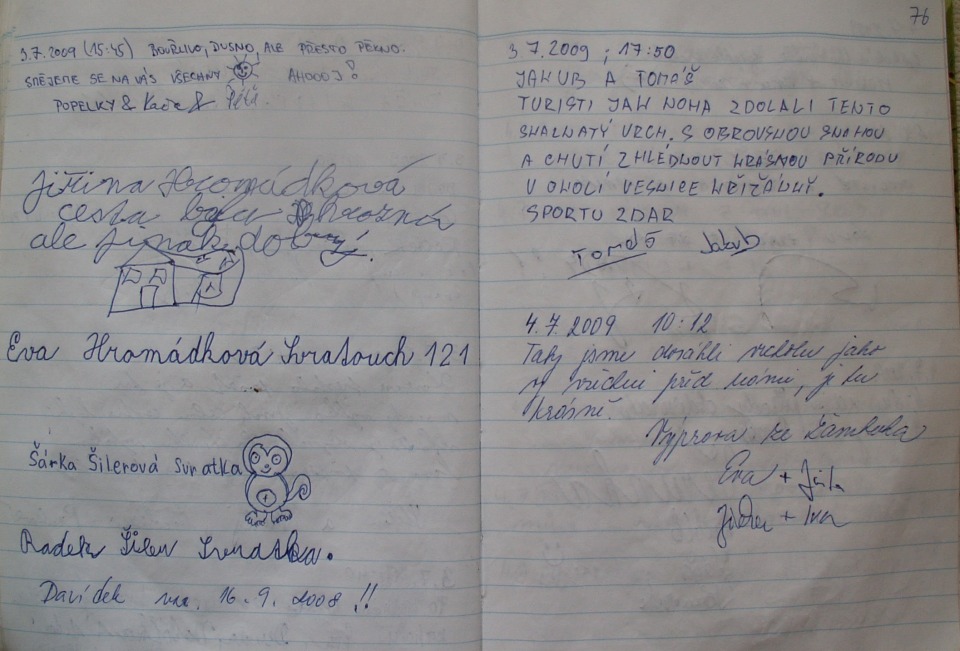 3.7.2009 (15:45) BOUŘLIVO, DUSNO, ALE PŘESTO PĚKNO.
SMĚJEME SE NA VÁS VŠECHNY AHOOOJ!
POPELKY & Kača &
Jiřina Hromádková
cesta byla hrozná
ale jinak dobrý.
Eva Hromádková Svratouch 121
Šárka Šilerová Svratka
Radek Šiler Svratka.
Davídek nar. 16.9. 2008 !!
76
3.7.2009 ; 17:50
JAKUB A TOMÁŠ
TURISTI JAK NOHA ZDOLALI TENTO
SKALNATÝ VRCH. S OBROVSKOU SNAHOU
A CHUTÍ ZHLÉDNOUT KRÁSNOU PŘÍRODU
V OKOLÍ VESNICE KŘIŽÁNKY.
SPORTU ZDAR
Tomáš Jakub
4.7.2009 10:12
Taky jsme dosáhli vrcholu jako
vy všichni před námi, je tu
krásně.
Výprava ze Žamberka
Eva + Jirka
+ Ivan